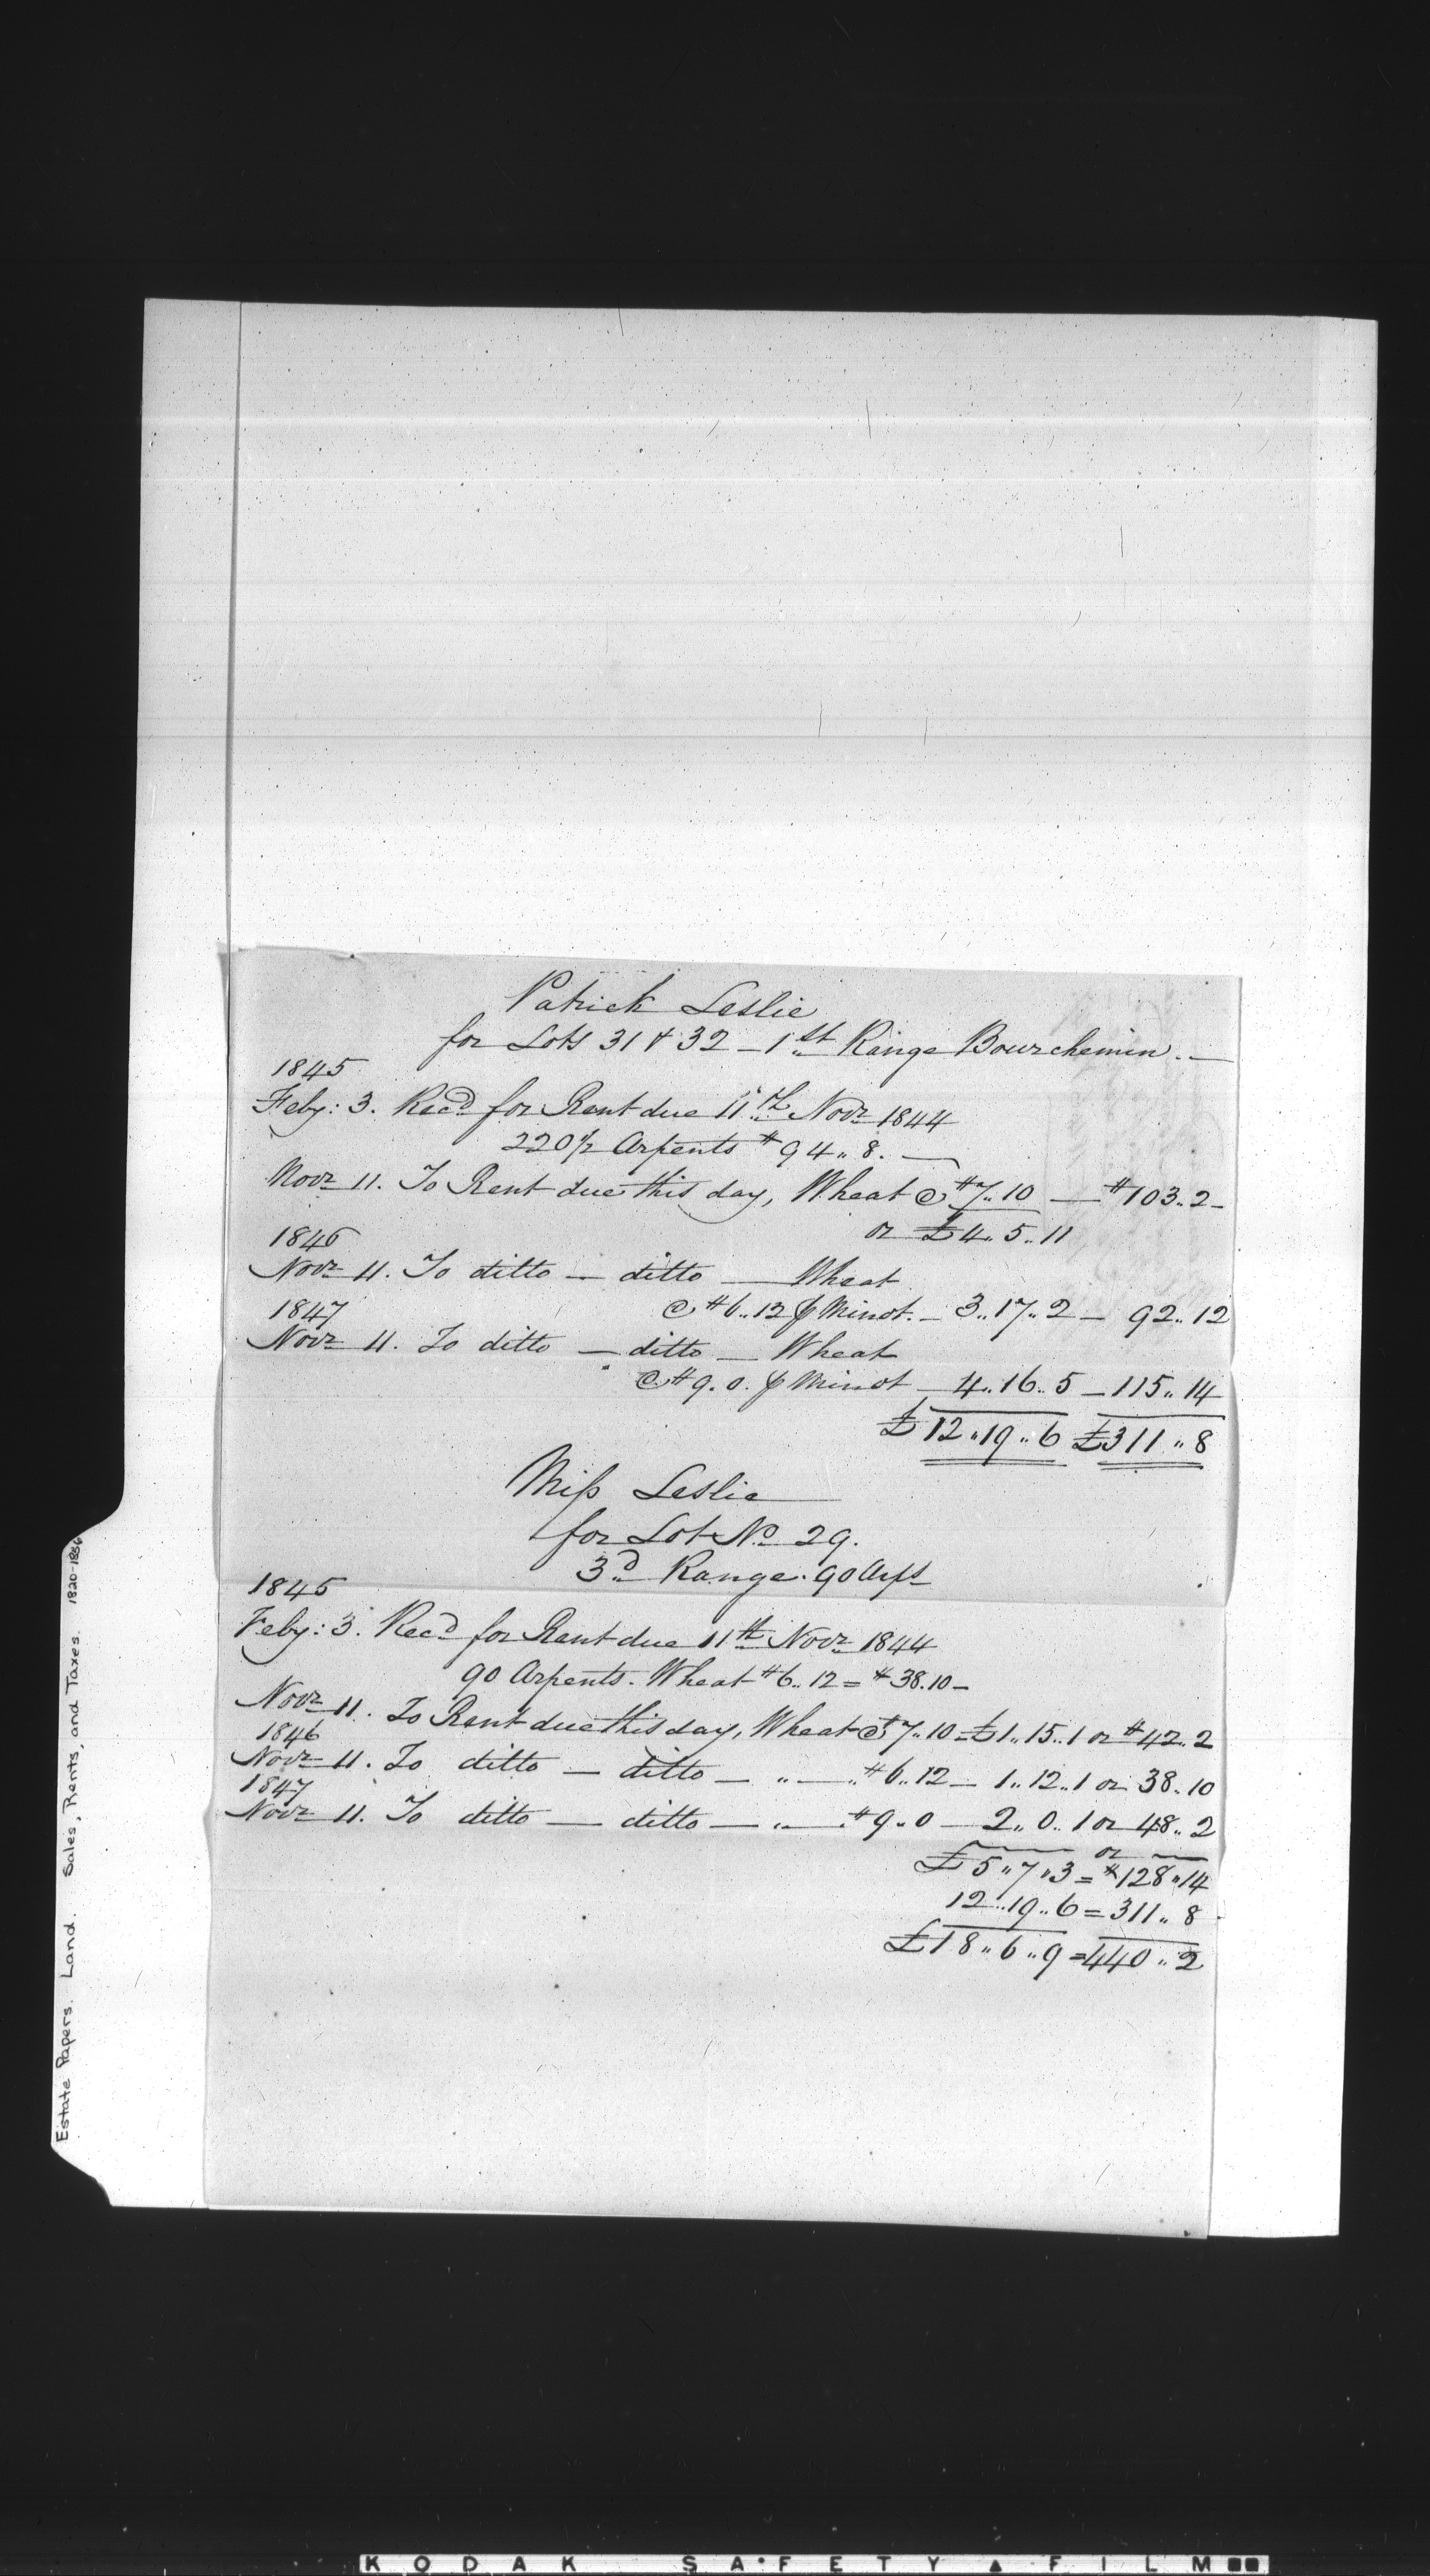 Patrick Leslie
for Lots 31 & 32 – 1st Range Bourchemin. –
1845
Feby: 3. Recd for Rent due 11th Novr 1844
220 1/2 Arpents # 94.. 8. —
Novr 11. To Rent due this day, Wheat @ # 7.. 10 — # 103.. 2 –
or £ 4.. 5.. 11
1846
Novr 11. To ditto – ditto — Wheat
@ # 6.. 12 ⅌ Minot. – 3.. 17.. 2 – 92.. 12
1847
Novr 11. To ditto – ditto – Wheat
@ # 9. 0. ⅌ Minot – 4.. 16.. 5 – 115.. 14
£ 12.. 19.. 6 £311.. 8
Miss Leslie
for Lot No 29.
3d Range. 90 Arpts
1845
Feby: 3. Recd for Rent due 11th Novr 1844
90 Arpents. Wheat # 6.. 12 = # 38. 10 –
Novr 11. To Rent due this day, Wheat @ # 7.. 10 = £1.. 15.. 1 or # 42.. 2
1846
Novr 11. To ditto – ditto – " — " # 6.. 12 – 1.. 12.. 1 or 38. 10
1847
Novr 11. To ditto – ditto – " — " # 9.. 0 – 2.. 0.. 1 or 48.. 2
or
£ 5.. 7.. 3 = # 128.. 14
12.. 19.. 6 = 311.. 8
£18.. 6.. 9 = 440.. 2
Estate Papers. Land. Sales, Rents, and Taxes. 1820-1856
KODAK SAFETY ▲ FILM